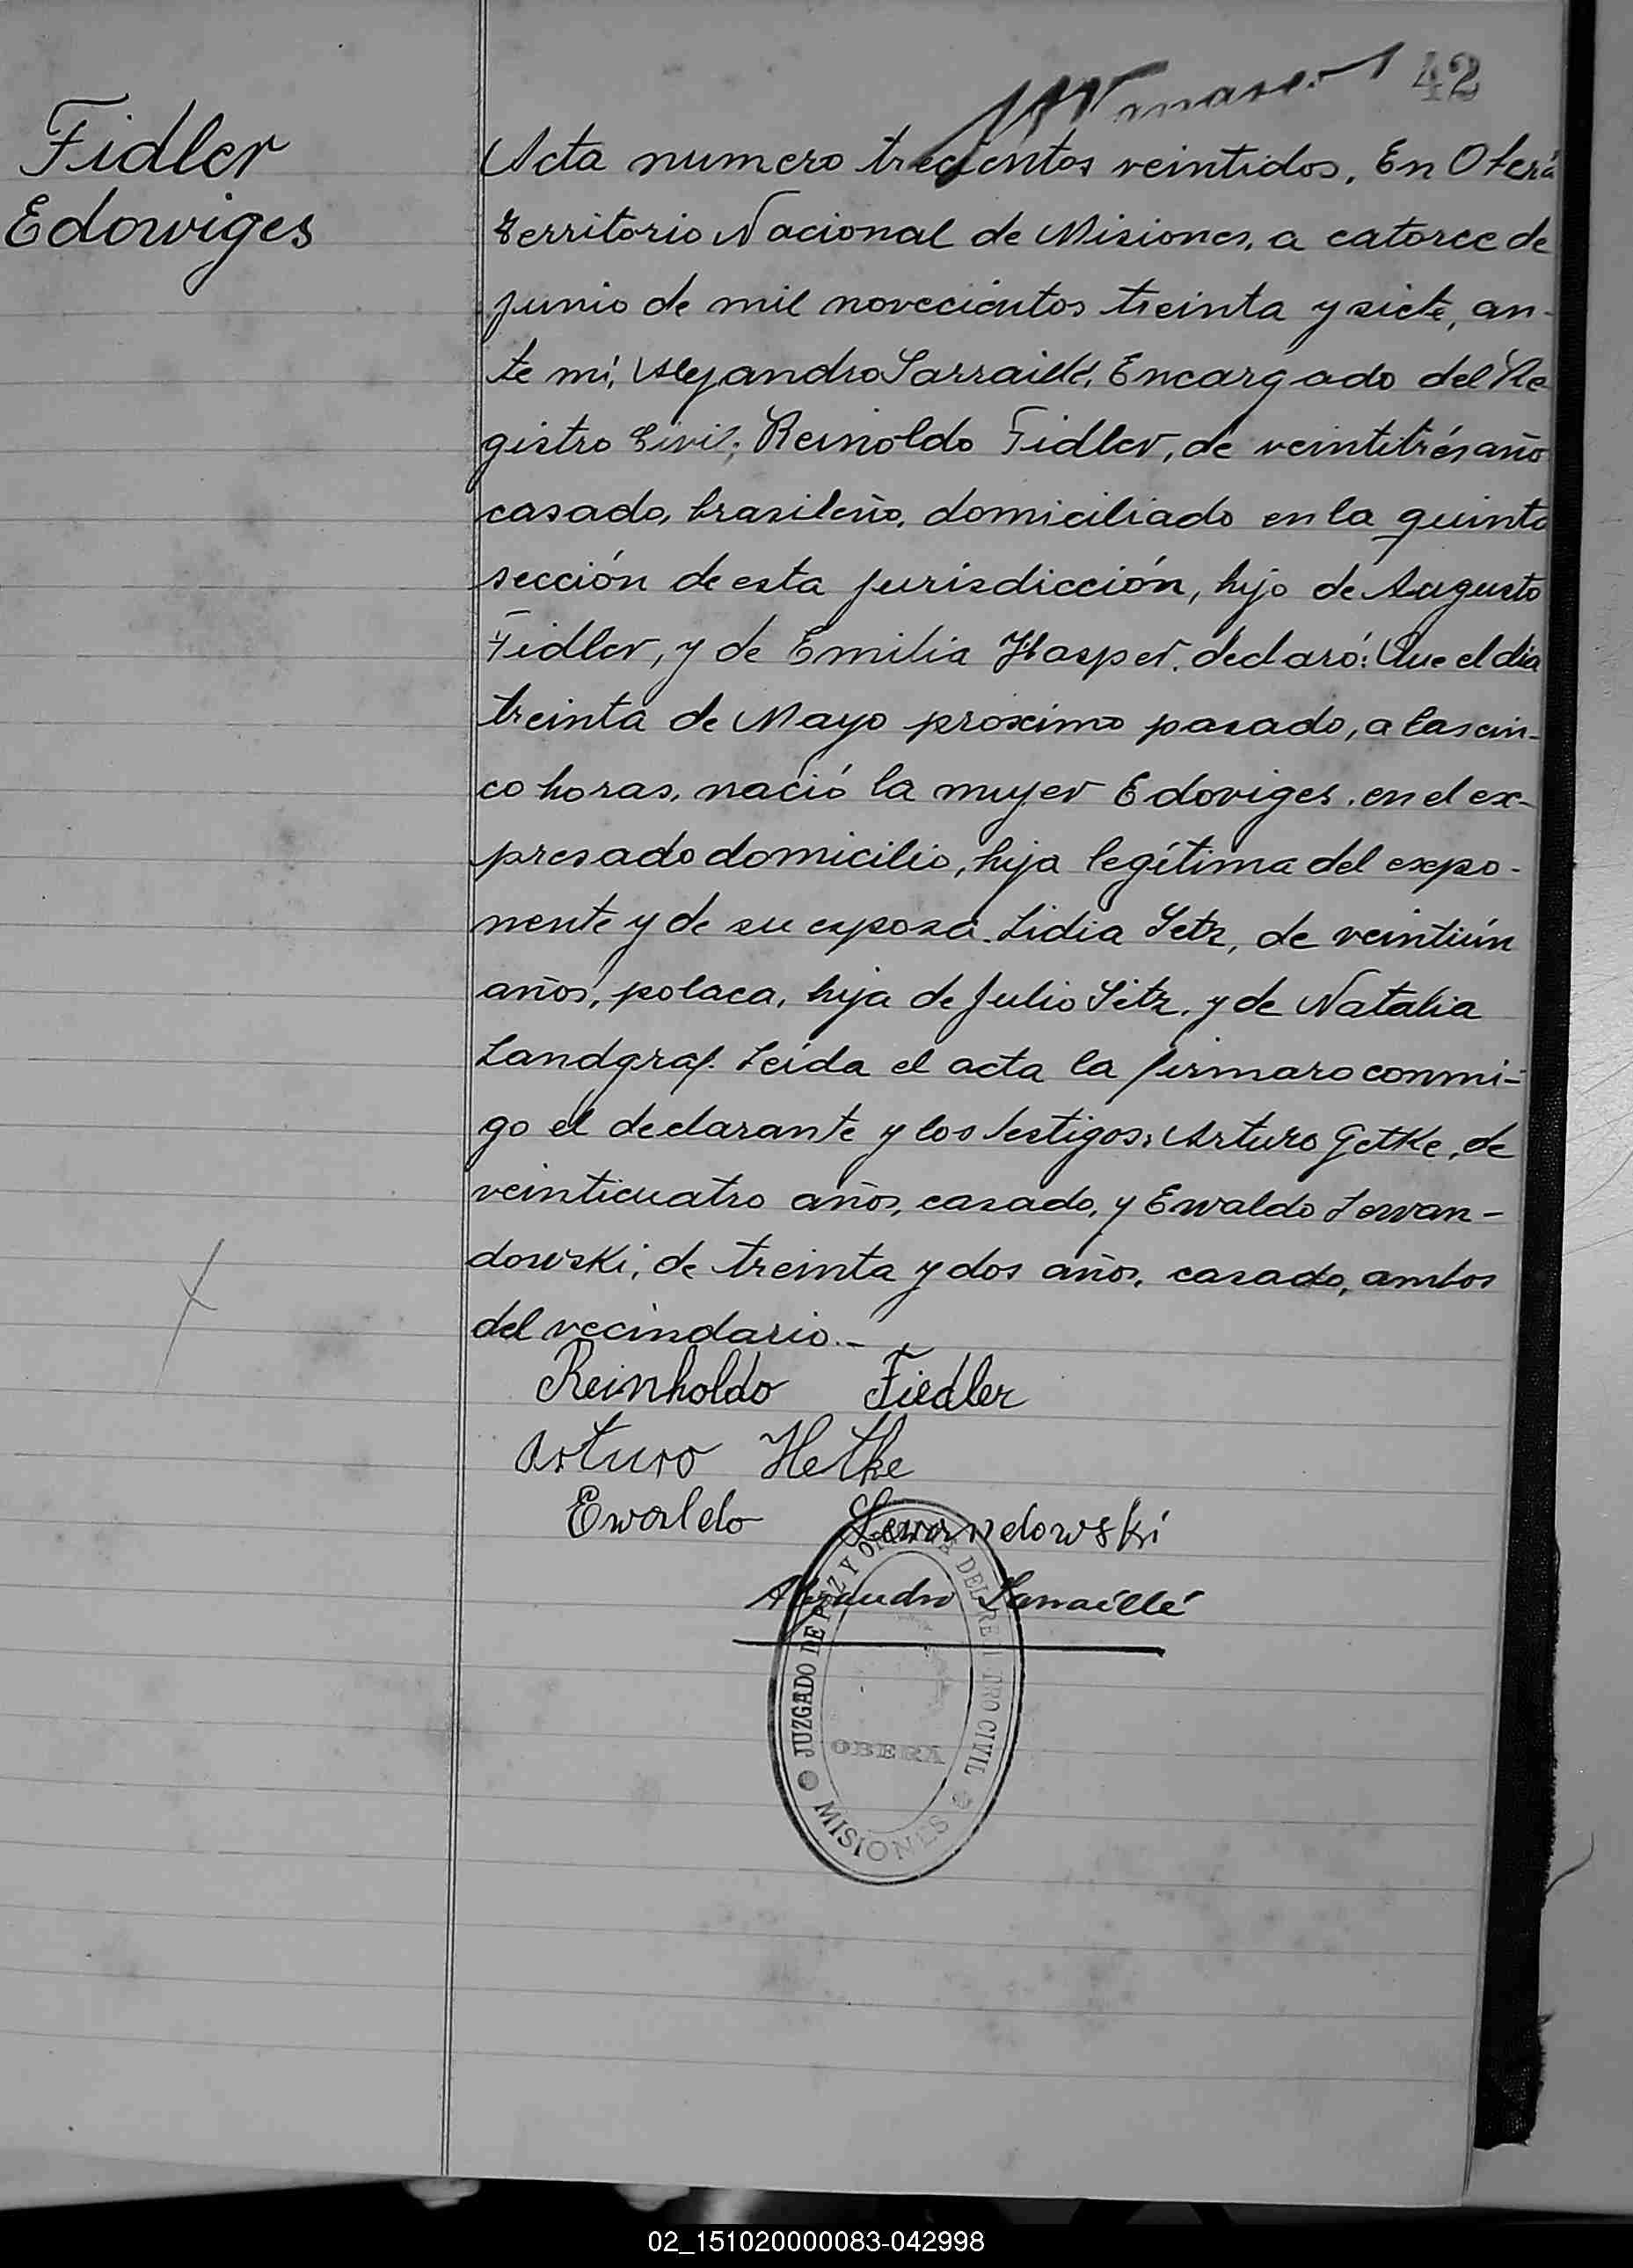 42
Fidler
Edowiges
Acta numero trecientos veintidos. En Oberá
Territorio Nacional de Misiones, a catorce de
junio de mil novecientos treinta y siete, an-
te mí, Alejandro Sarraillé, Encargado del Re
gistro Civil; Reinoldo Fidler, de veintitrés año
casado, brasileño, domiciliado en la quinta
sección de esta jurisdicción, hijo de Augusto
Fidler, y de Emilia Hasper, declaró: Que el dia
treinta de Mayo proximo pasado, a las cin-
co horas, nació la mujer Edoviges, en el ex-
presado domicilio, hija legítima del expo-
nente y de su esposa Lidia Setz, de veintiún
años, polaca, hija de Julio Setz, y de Natalia
Landgraf. Leída el acta la firmaro conmi-
go el declarante y los testigos: Arturo Getke, de
veinticuatro años, casado, y Ewaldo Lewan-
dowski, de treinta y dos años, casado, ambos
del vecindario.-
Reinholdo Fiedler
Arturo Hetke
Ewaldo Lewandowski
Alejandro Sarraillé
JUZGADO DE PAZ Y OFICINA DEL REGISTRO CIVIL
OBERÁ
MISIONES
02_151020000083-042998